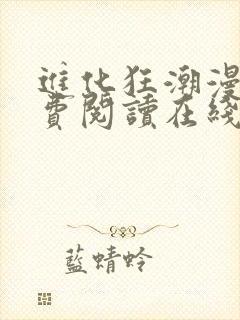 進化狂潮漫
費閱讀在綫
藍蜻蛉